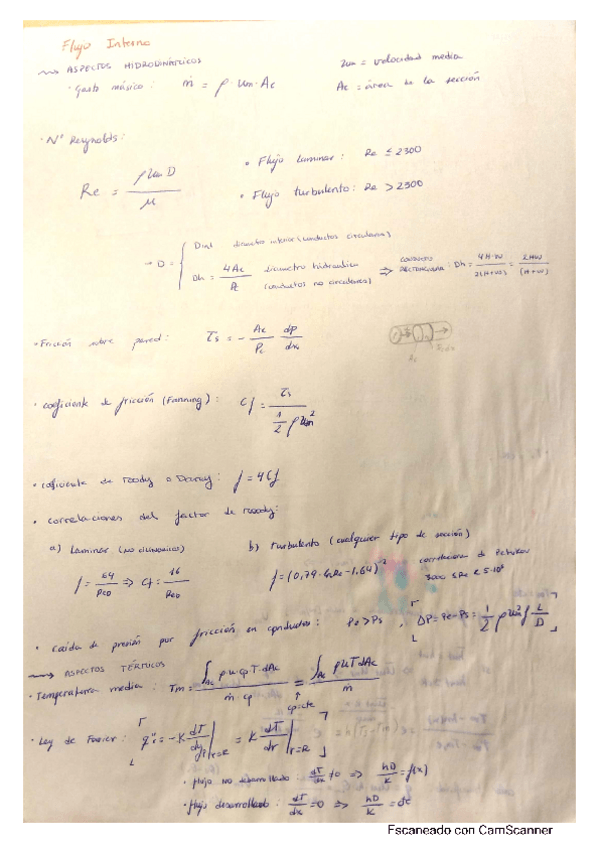 Flujo Interno
ASPECTOS HIDRODINÁMICOS
um = velocidad media
· Gasto másico: ṁ = ρ · um · Ac
Ac = área de la sección
· Nº Reynolds:
Re = ρ um D / μ
• Flujo laminar: Re ≤ 2300
• Flujo turbulento: Re > 2300
→ D = { Dint diametro interior (conductos circulares)
Dh = 4Ac / P diametro hidraulico (conductos no circulares) ⇒ CONDUCTO RECTANGULAR: Dh = 4H·W / 2(H+W) = 2HW / (H+W)
• Fricción sobre pared: τs = - Ac/Pc dp/dx
· coeficiente de fricción (Fanning): Cf = τs / (1/2 ρ um²)
• coeficiente de Moody o Darcy: f = 4Cf
• correlaciones del factor de Moody:
a) Laminar
b) turbulento (cualquier tipo de sección)
f = 64/ReD ⇒ Cf = 16/ReD
f = (0,79 · Ln Re - 1,64)⁻²
correlacion de Petukov
3000 ≤ Re ≤ 5·10⁶
• caída de presión por fricción en conductos: Pe > Ps, ΔP = Pe - Ps = 1/2 ρ um² f L/D
ASPECTOS TÉRMICOS
· Temperatura media: Tm = ∫Ac ρ u cp T dAc / ṁ cp = ∫Ac ρ u T dAc / ṁ
cp=cte
· Ley de Fourier: q''s = -K dT/dy |r=R = K dT/dr |r=R
· flujo no desarrollado: dT/dx ≠ 0 ⇒ hD/K = f(x)
· flujo desarrollado: dT/dx = 0 ⇒ hD/K = cte
Escaneado con CamScanner